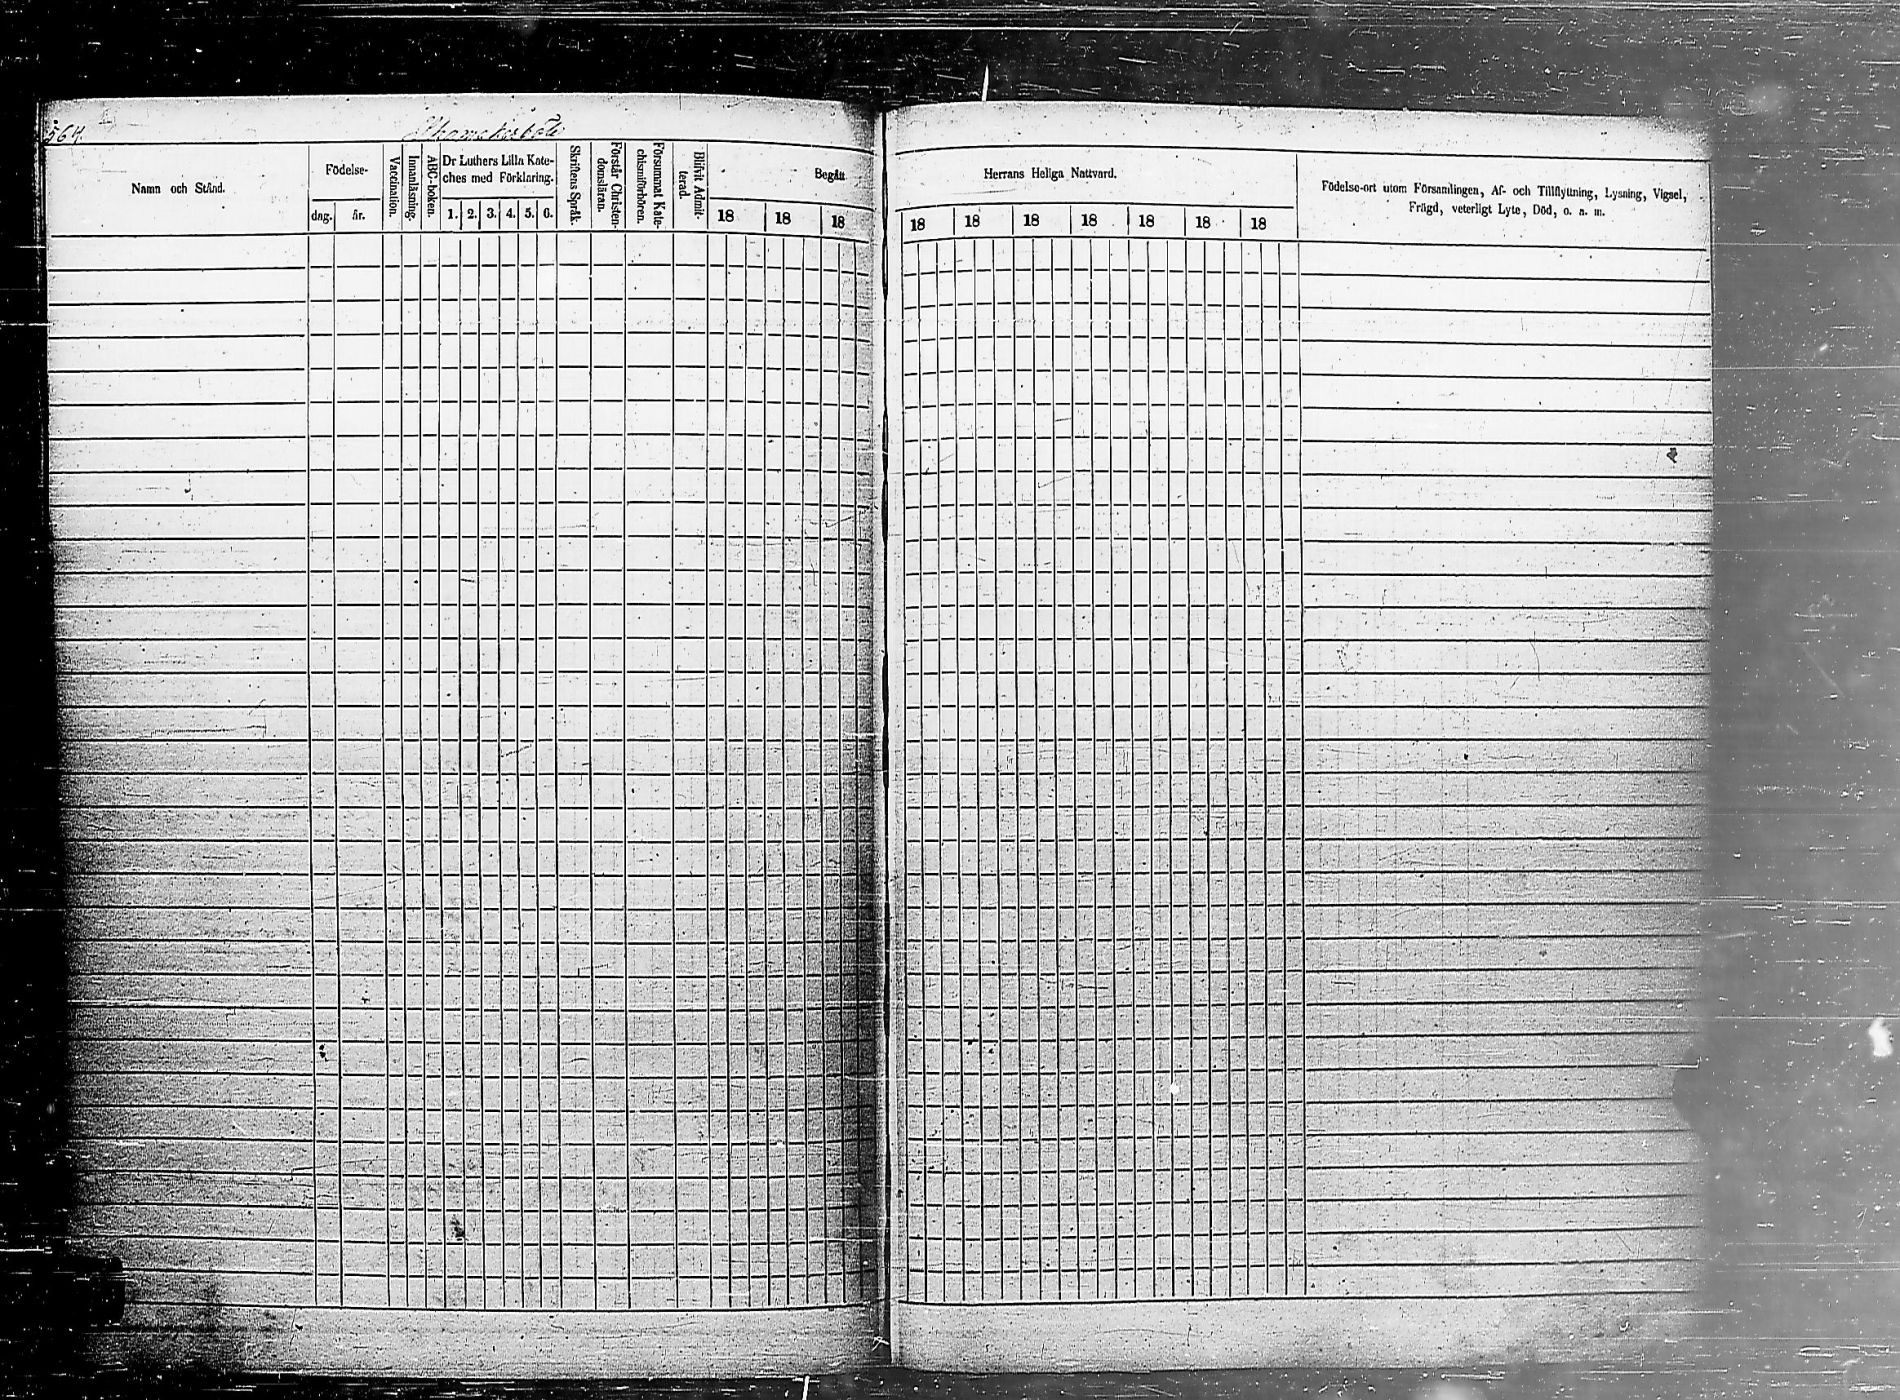 564.
Namn och Stånd.
Födelse-
dag. år.
Vaccination.
Innanläsning.
ABC-boken.
Dr Luthers Lilla Kate-
ches med Förklaring.
1. 2. 3. 4. 5. 6.
Skriftens Språk.
Förstår Christen-
domsläran.
Försummat Kate-
chismiförhören.
Blifvit Admit-
terad.
Begått
18 18 18
Herrans Heliga Nattvard.
18 18 18 18 18 18 18
Födelse-ort utom Församlingen, Af- och Tillflyttning, Lysning, Vigsel,
Frägd, veterligt Lyte, Död, o. a. m.